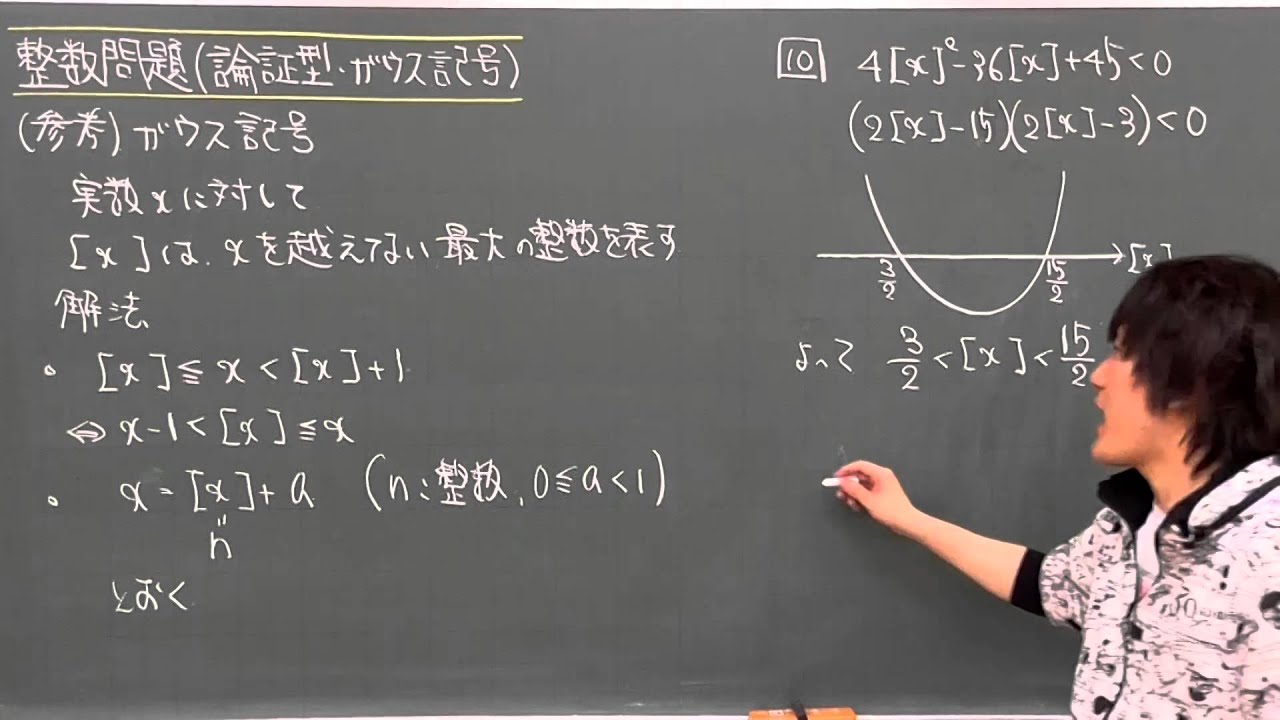 整数問題(論証型・ガウス記号)
(参考)ガウス記号
実数xに対して
[x]は、xを越えてない最大の整数を表す
解法
・ [x]≦x<[x]+1
⇔ x-1<[x]≦x
・ x=[x]+a (n:整数,0≦a<1)
〃
n
とおく
10 4[x]²-36[x]+45<0
(2[x]-15)(2[x]-3)<0
3/2 15/2 [x]
よって 3/2<[x]<15/2